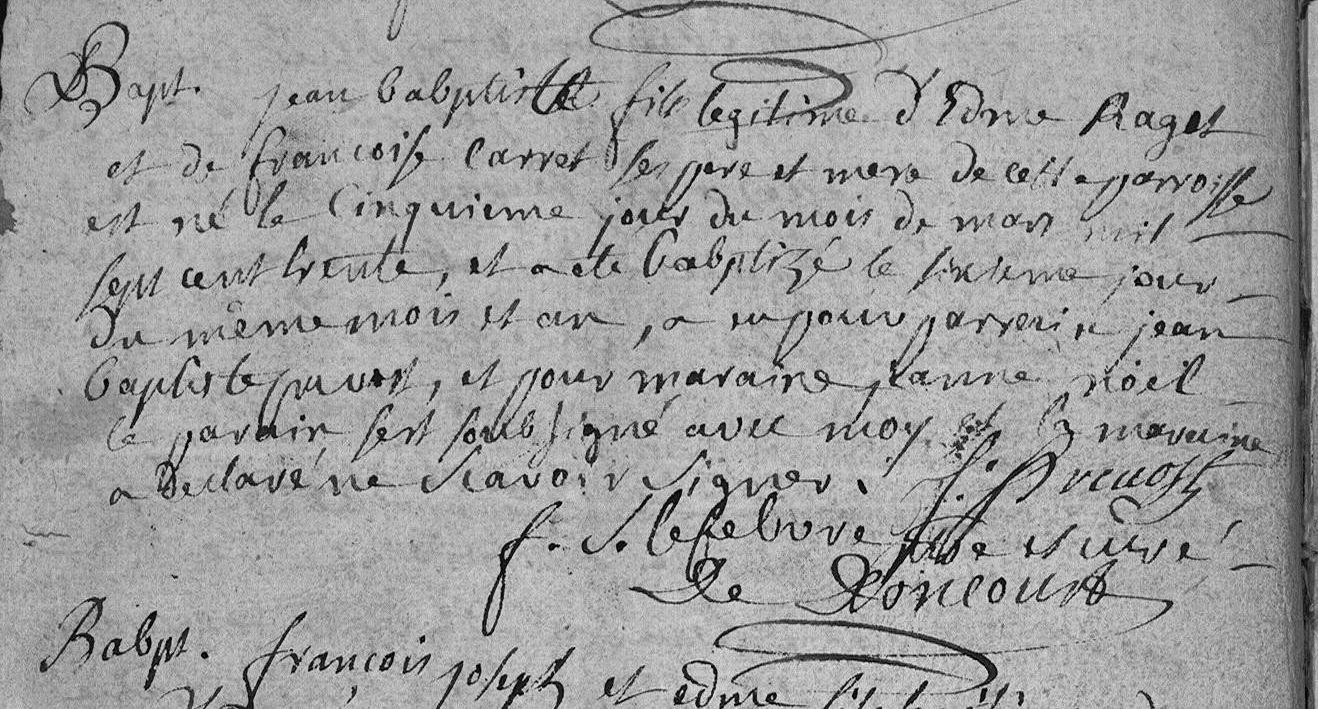 Bapt. jean babptiste fils legitime d'Edme Raget
et de francoise Carret ses pere et mere de cette parroisse
est né le Cinquieme jour du mois de mars mil
sept cent trente, et a eté babptizé le sixieme jour
du même mois et an, a eu pour parrein jean
baptiste prevost, et pour maraine jeanne noël
le parain sest soubsigné avec moy et la maraine
a declaré ne scavoir signer. J. Prevost
f. S. lefebvre ptbe et curé
De Doncourt
Babpt. françois joseph et edme